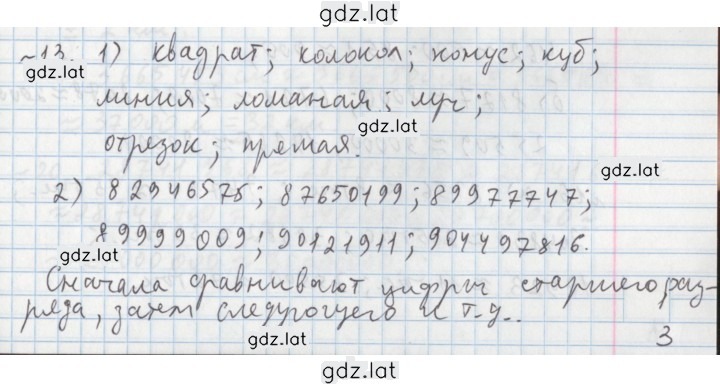 gdz.lat
№13. 1) квадрат; колокол; конус; куб;
gdz.lat
линия; ломаная; луч;
gdz.lat
отрезок; прямая.
gdz.lat
2) 82946575; 87650199; 89977747;
89999009; 90121911; 904497816.
gdz.lat
Сначала сравнивают цифры старшего раз-
ряда, затем следующего и т.д..
gdz.lat
3
gdz.lat